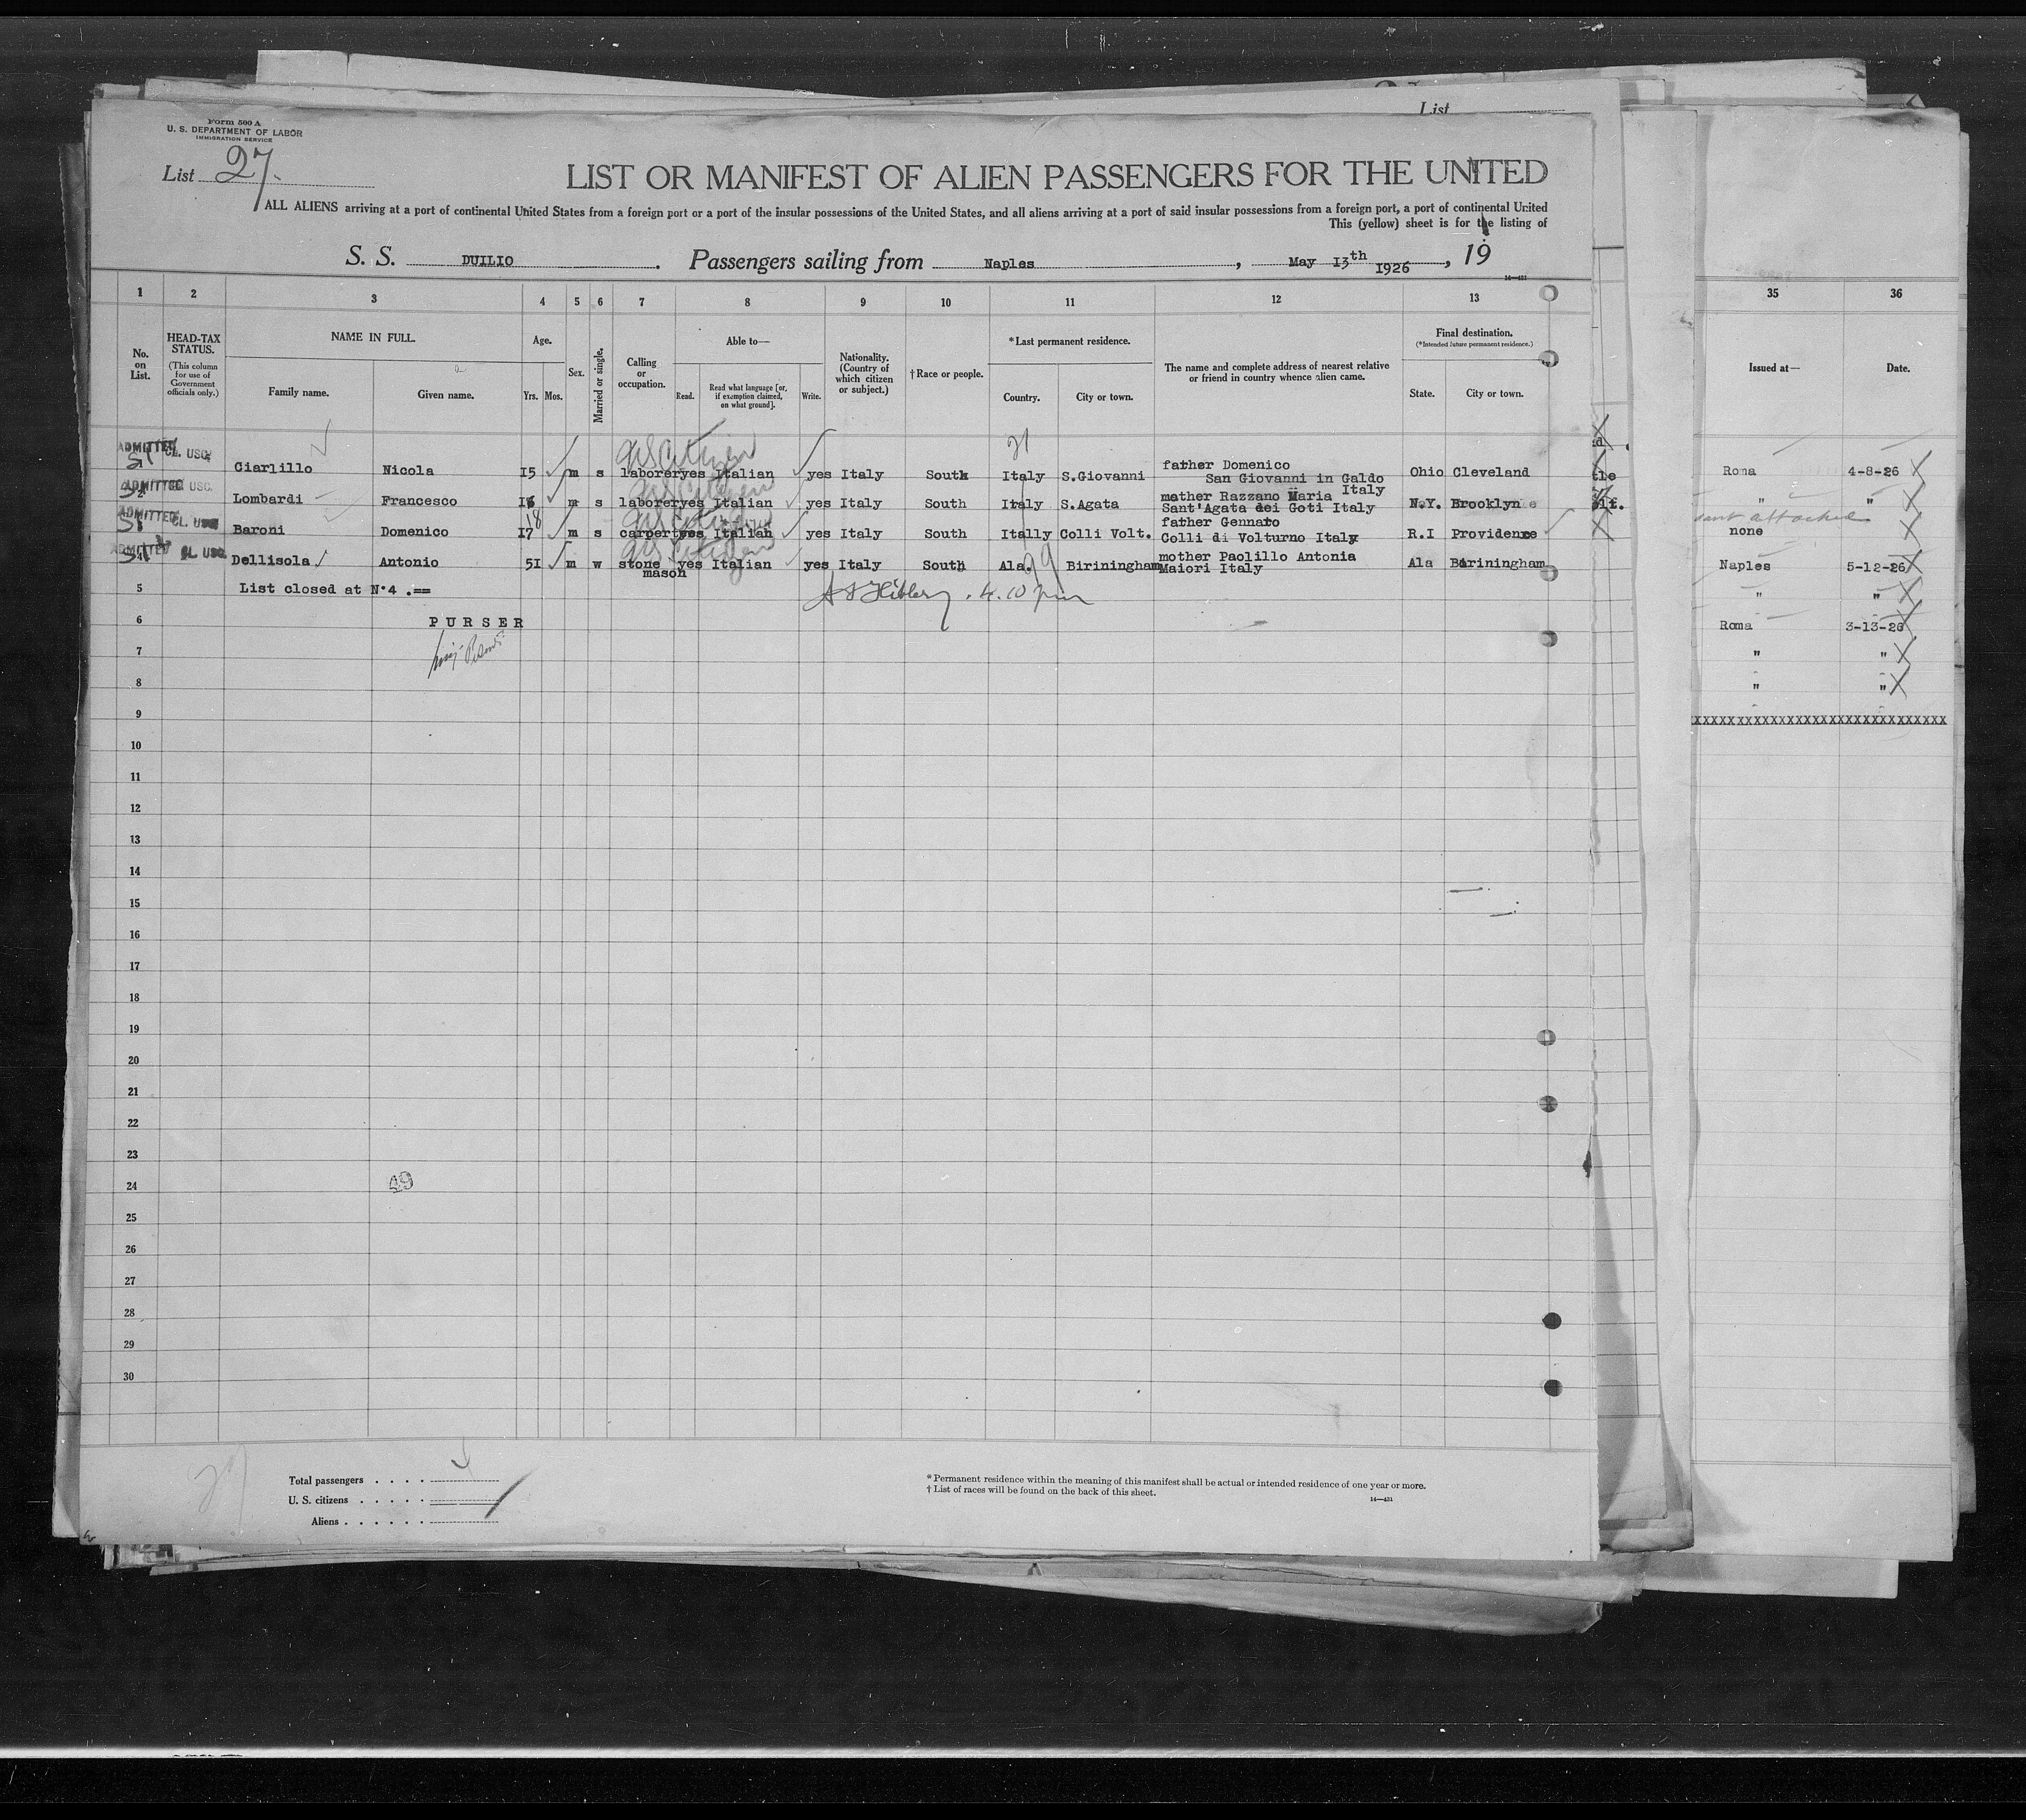 List
Form 500 A
U. S. DEPARTMENT OF LABOR
IMMIGRATION SERVICE
List 27.
LIST OR MANIFEST OF ALIEN PASSENGERS FOR THE UNITED
ALL ALIENS arriving at a port of continental United States from a foreign port or a port of the insular possessions of the United States, and all aliens arriving at a port of said insular possessions from a foreign port, a port of continental United
This (yellow) sheet is for the listing of
S. S. DUILIO. Passengers sailing from Naples, May 13th 1926, 19
14—431
1 2 3 4 5 6 7 8 9 10 11 12 13
No. on List.
HEAD-TAX STATUS.
(This column for use of Government officials only.)
NAME IN FULL.
Family name.
Given name.
Age.
Yrs. Mos.
Sex.
Married or single.
Calling or occupation.
Able to—
Read.
Read what language [or, if exemption claimed, on what ground].
Write.
Nationality. (Country of which citizen or subject.)
†Race or people.
*Last permanent residence.
Country.
City or town.
The name and complete address of nearest relative or friend in country whence alien came.
Final destination.
(*Intended future permanent residence.)
State.
City or town.
35 36
Issued at—
Date.
ADMITTED CL. USC. Ciarlillo Nicola I5 m s US Citizen laborer yes Italian yes Italy South Italy S.Giovanni father Domenico San Giovanni in Galdo Italy Ohio Cleveland
ADMITTED USC. Lombardi Francesco m s US Citizen laborer yes Italian yes Italy South Italy S.Agata mather Razzano Maria Sant'Agata dei Goti Italy N.Y. Brooklyn
ADMITTED CL. USC Baroni Domenico I7 18 m s US Citizen carpert yes Italian yes Italy South Itally Colli Volt. father Gennato Colli di Volturno Italy R.I Providence
ADMITTED CL. USC. Dellisola Antonio 5I m w US Citizen stone mason yes Italian yes Italy South Ala. Biriningham mother Paolillo Antonia Maiori Italy Ala Biriningham
5 List closed at N.4 .==
4.10 pm
6 PURSER
7
8
9
10
11
12
13
14
15
16
17
18
19
20
21
22
23
24
25
26
27
28
29
30
49
Roma 4-8-26
" "
attached
none
Naples 5-12-26
" "
Roma 3-13-26
" "
" "
xxxxxxxxxxxxxxxxxxxxxxxxxxxxxx
Total passengers . . . . 4
U. S. citizens . . . . .
Aliens . . . . . .
* Permanent residence within the meaning of this manifest shall be actual or intended residence of one year or more.
† List of races will be found on the back of this sheet.
14—431